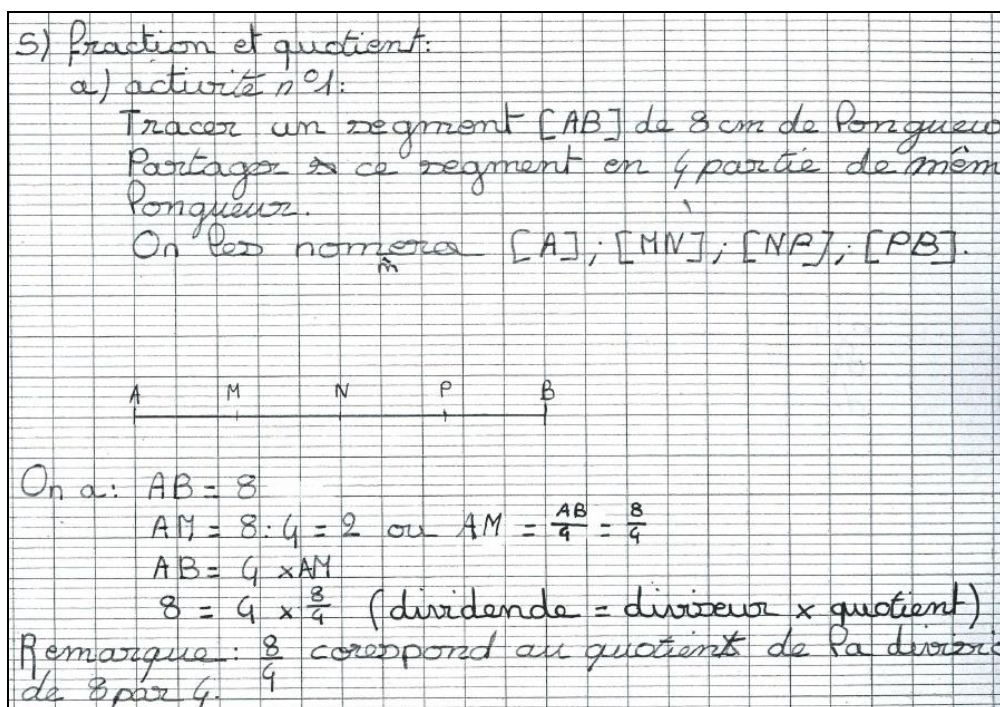 5) fraction et quotient:
a) activité n°1:
Tracer un segment [AB] de 8 cm de longueu
Partager ce segment en 4 partie de mêm
longueur.
On les nomera [A]; [MN]; [NP]; [PB].
m
A M N P B
On a: AB = 8
AM = 8 : 4 = 2 ou AM = AB/4 = 8/4
AB = 4 × AM
8 = 4 × 8/4 (dividende = diviseur × quotient)
Remarque: 8/4 corespond au quotient de la divisi
de 8 par 4.